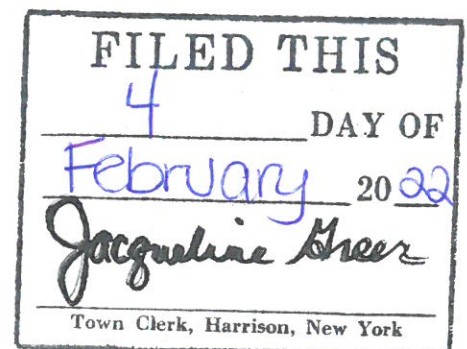 FILED THIS
4 DAY OF
February 20 22
Jacqueline Greer
Town Clerk, Harrison, New York